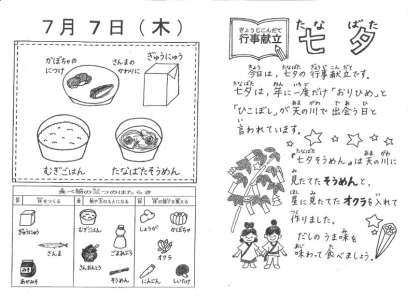 7月7日(木)
かぼちゃの
につけ
さんまの
かわりに
ぎゅうにゅう
むぎごはん
たなばたそうめん
食べ物の三つのはたらき
ぎゅうにゅう
さんま
あかみそ
むぎごはん
ごまあぶら
さんおんとう
そうめん
しょうが
かぼちゃ
オクラ
にんじん
しいたけ
ぎょうじこんだて
行事献立
たな ばた
七夕
きょう たなばた ぎょうじ こんだて
今日は、七夕の行事献立です。
たなばた ねん いちど
七夕は、年に一度だけ「おりひめ」と
あま がわ であ ひ
「ひこぼし」が天の川で出会う日と
い
言われています。
たなばた あま がわ
『七夕そうめん』は天の川に
み
見たてたそうめんと、
ほし み い
星に見たてたオクラを入れて
つく
作りました。
み
だしのうま味を
あじ た
味わって食べましょう。